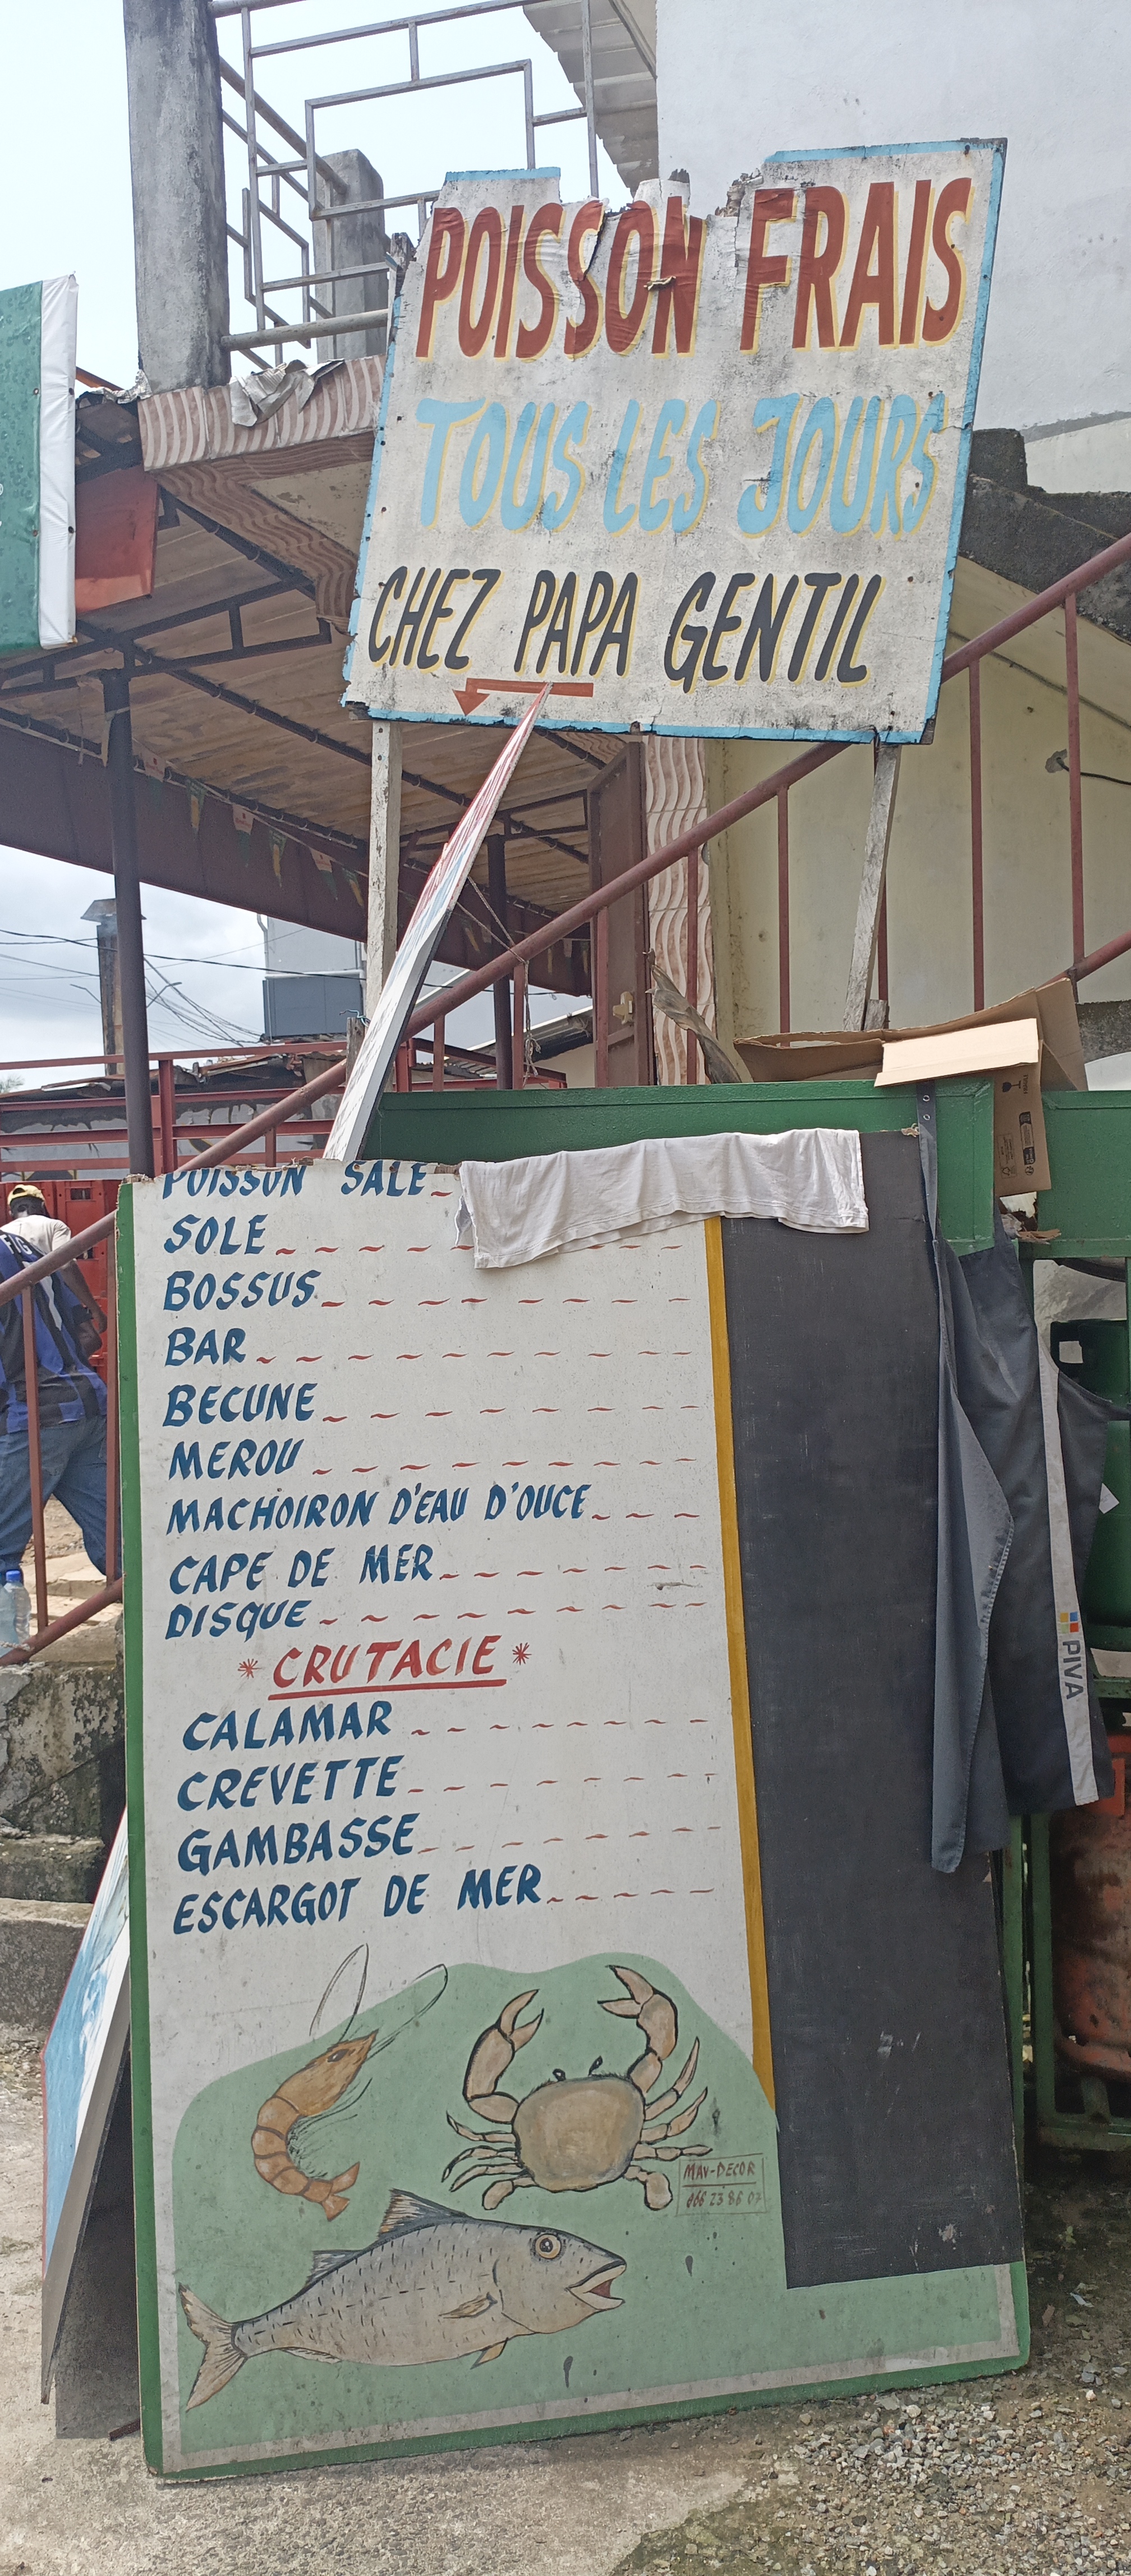 POISSON FRAIS
TOUS LES JOURS
CHEZ PAPA GENTIL
POISSON SALE
SOLE
BOSSUS
BAR
BECUNE
MEROU
MACHOIRON D'EAU D'OUCE
CAPE DE MER
DISQUE
* CRUTACIE *
CALAMAR
CREVETTE
GAMBASSE
ESCARGOT DE MER
MAV-DECOR
PIVA